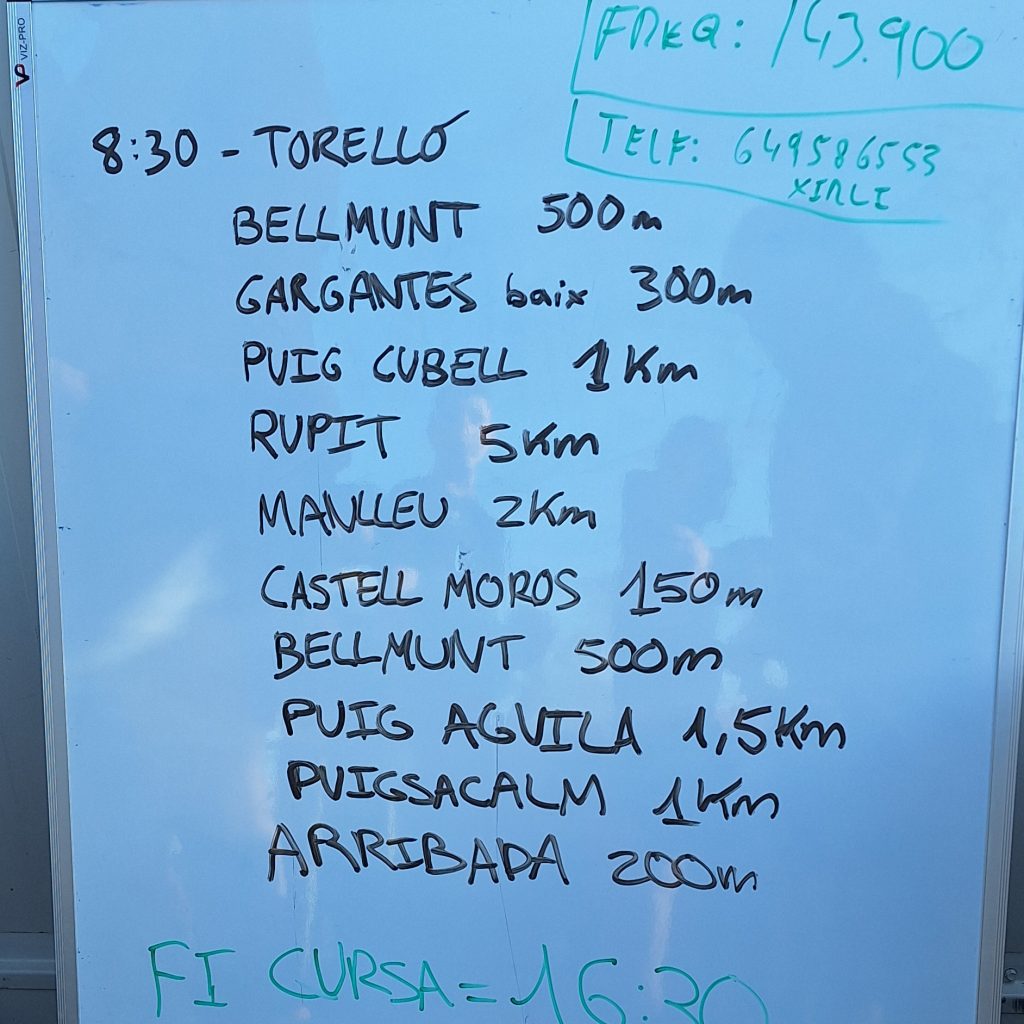 VIZ-PRO
FREQ: 143.900
TELF: 649586553
XIRLI
8:30 - TORELLÓ
BELLMUNT 500m
GARGANTES baix 300m
PUIG CUBELL 1Km
RUPIT 5Km
MANLLEU 2Km
CASTELL MOROS 150m
BELLMUNT 500m
PUIG AGUILA 1,5Km
PUIGSACALM 1Km
ARRIBADA 200m
FI CURSA = 16:30